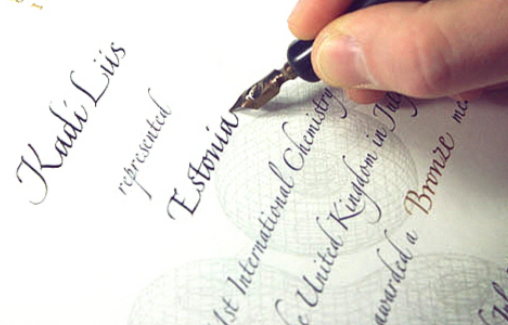 Kadi Liis
represented
Estonia
1st International Chemistry
United Kingdom in July
awarded a Bronze me